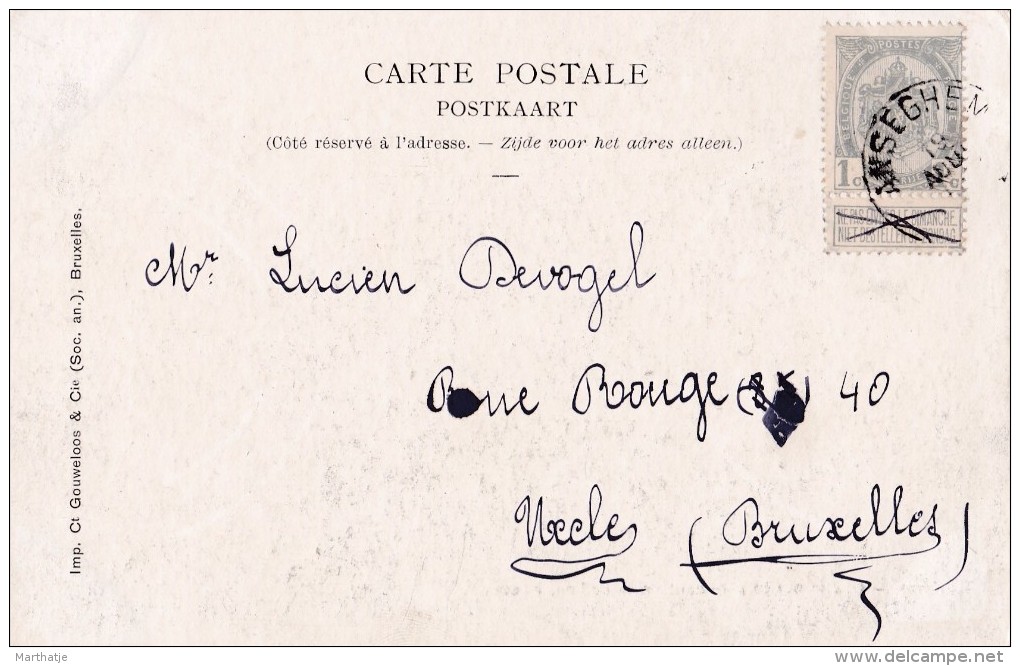 CARTE POSTALE
POSTKAART
(Côté réservé à l'adresse. — Zijde voor het adres alleen.)
POSTES
BELGIQUE
1
ANSEGHEM
18
AOU
NE PAS DIMANCHE
NIET BESTELLEN ZONDAG
Mr. Lucien Devogel
Rue Rouge 40
Uccle
(Bruxelles)
Imp. Ct Gouweloos & Cie (Soc. an.), Bruxelles,
Marthatje
delcampe.net